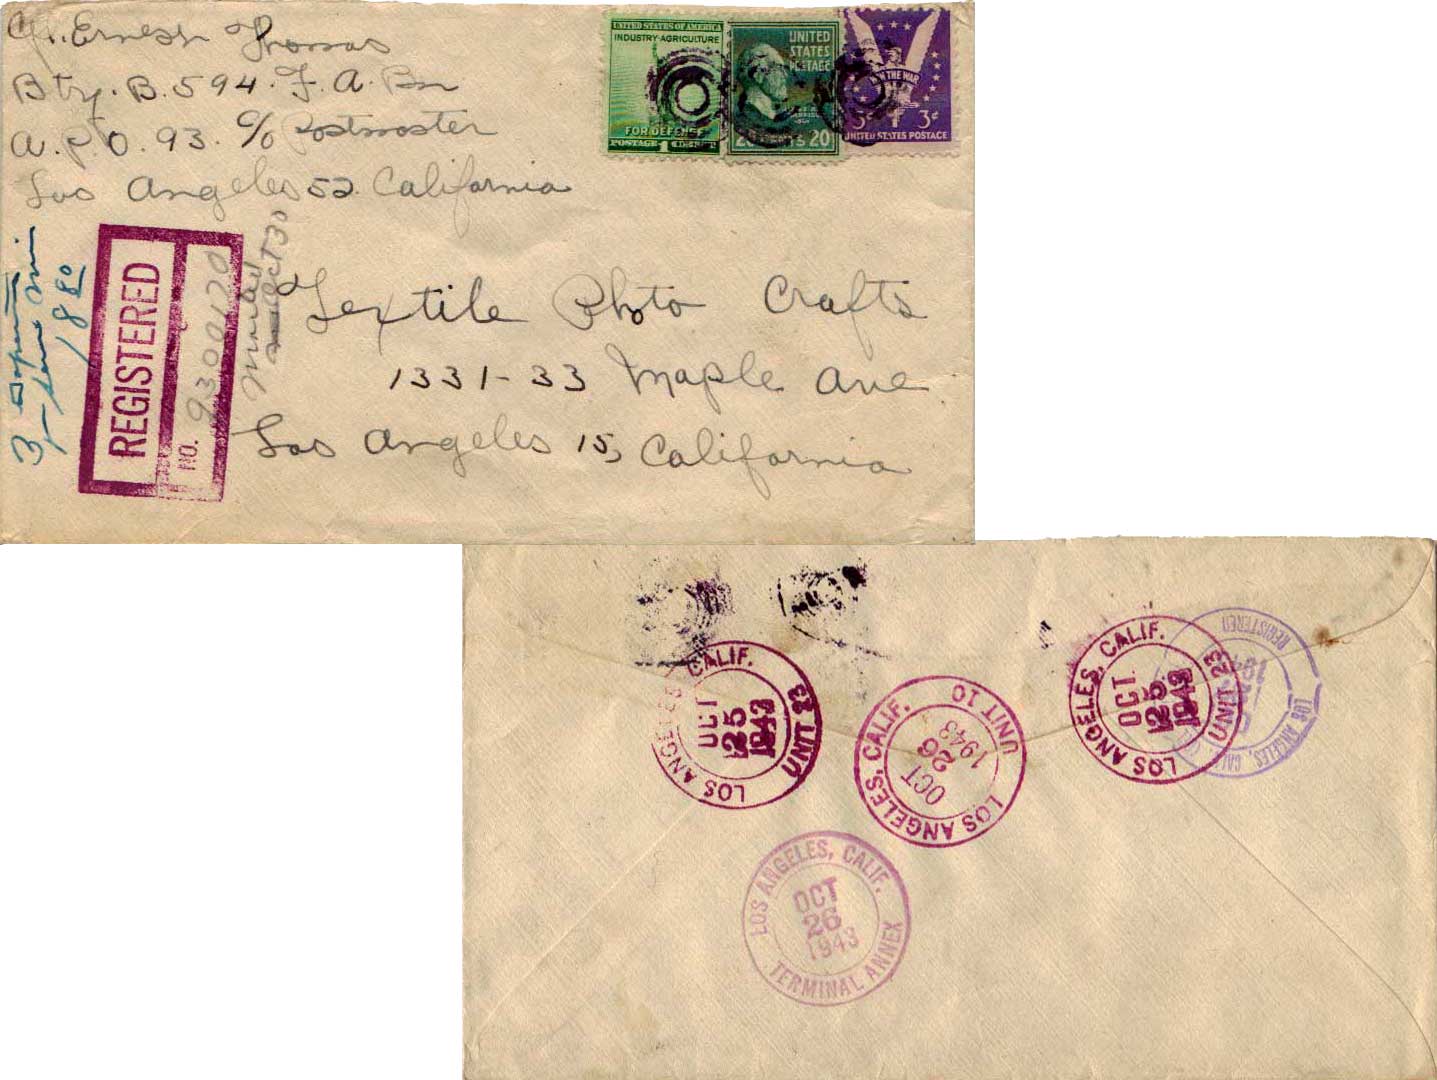 Ernest Thomas
Btry. B. 594. F. A. Bn
A.P.O. 93. c/o Postmaster
Los Angeles 52. California
UNITED STATES OF AMERICA
INDUSTRY·AGRICULTURE
FOR DEFENSE
POSTAGE 1 CENT
UNITED
STATES
POSTAGE
20 CENTS 20
WIN THE WAR
3¢ 3¢
UNITED STATES POSTAGE
REGISTERED
NO.
Mailed
Oct 30
Textile Photo Crafts
1331-33 Maple Ave
Los Angeles 15, California
LOS ANGELES, CALIF.
OCT
25
1943
UNIT 23
LOS ANGELES, CALIF.
OCT
26
1943
UNIT 10
LOS ANGELES, CALIF.
OCT.
25
1943
UNIT 23
REGISTERED
LOS ANGELES, CALIF.
LOS ANGELES, CALIF.
OCT
26
1943
TERMINAL ANNEX